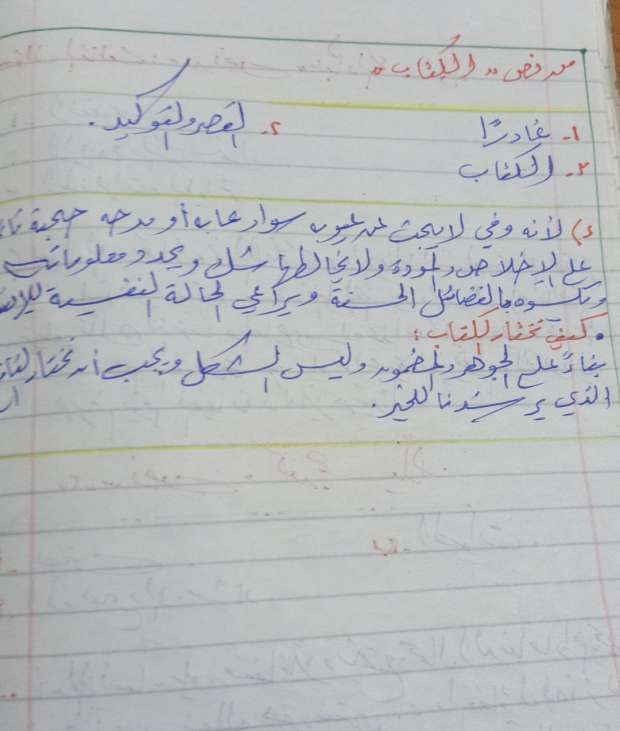 من نص " الكتاب "
١- غادرًا
٢- القصر والتوكيد.
٢- الكتاب
٤) لأنه وفي لا يبحث عن عيوب سواء عابه أو مدحه صحبة
على الإخلاص والمودة ولا يخالطها شك ويجدد معلوماتك
ويكسوه بالفضائل الحسنة ويراعي الحالة النفسية
• كيف تختار الكتاب:
بناءً على الجوهر والمضمون وليس الشكل ويجب أن نختار
الذي يرشدنا للخير.